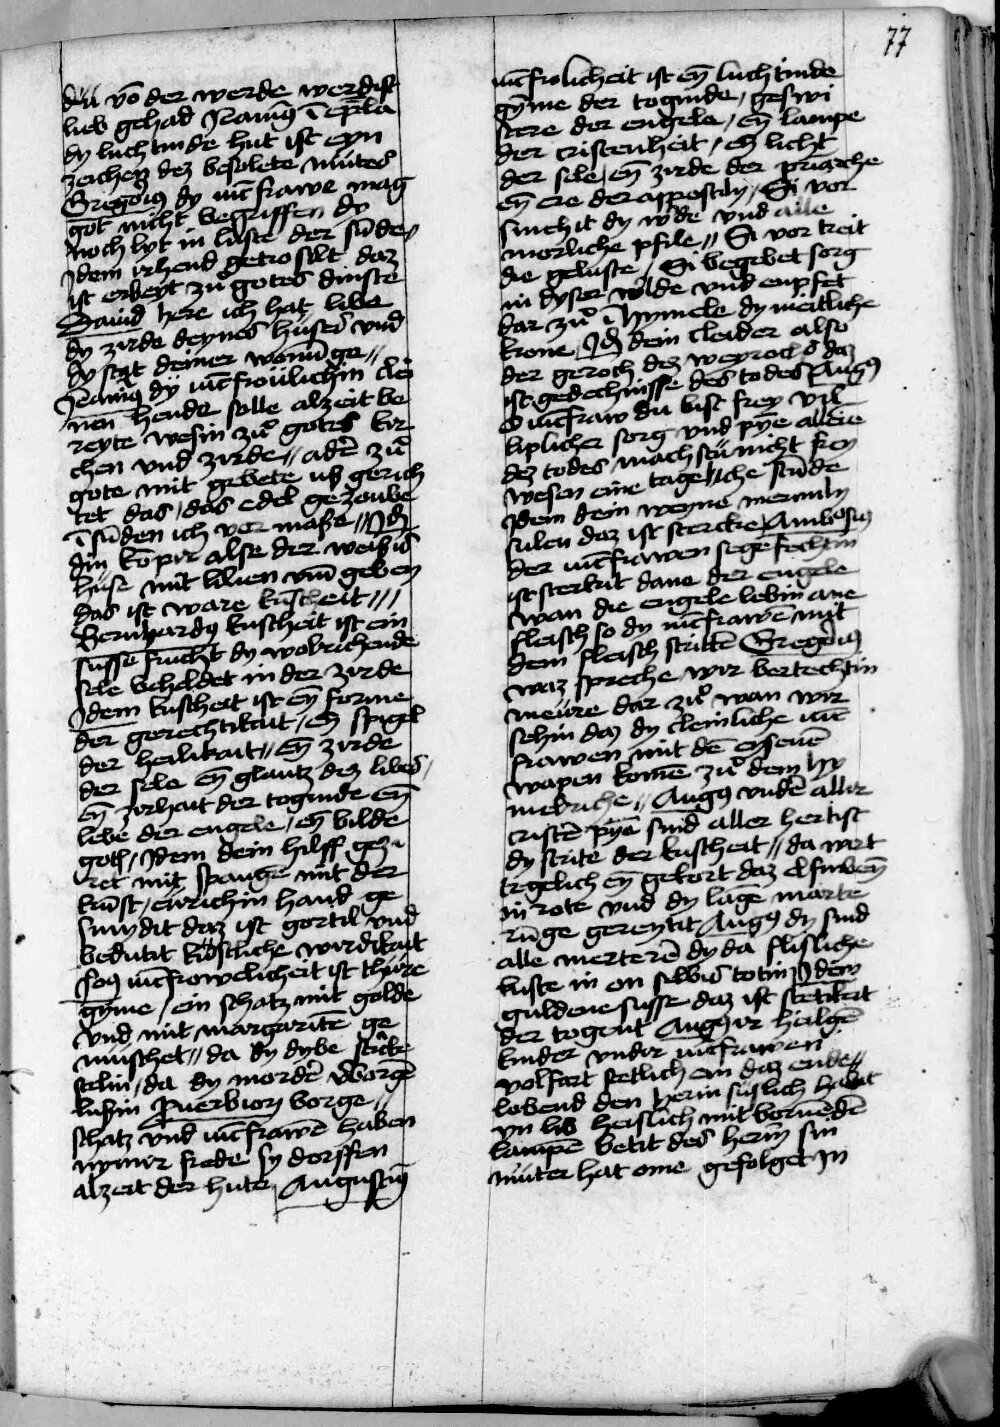 77
du vō der werde werdist
lieb gehad Jeronimꝰ ī ep̄la
dy luchtinde hut ist eyn
zeichen dez besolete mutes
Gregoriꝰ dy iūcfrawe mag
got nicht begriffen dy
noch lyt in luste der sūde //
Jdem irhend getrosilt daz
ist erbeyt zů gotes dinste
Dauid here ich hat libe
dy zirde deynes huses vnd
dy stat deiner wonūge //
Jeronimꝰ dy iūcfroülichin clei
nen hende solle alzeit be
reyte wesin zů gotes kir
chen vnd zirde // adir zů
gote mit gebete uf gerich
tet das / das edel gezoube
ī sūden ich vor maße // Jd
din kōpir alse der weißis
huse mit lilien vm̄ geben
das ist ware kuscheit ///
Bernhardꝰ kuscheit ist ein
susse frucht dy wolrichende
sele beheldet in der zirde
Jdem kuscheit ist eȳ forme
der gerechtikait / eȳ spigel
der heilikait // eȳ zirde
der sele eȳ glantz dez libes /
eȳ zirheit der toginde eȳ
lebe der engele / eȳ bilde
gotis / Jdem dein hilff gezi
ret mit spangē mit der
kūst / eirichin hand ge
smydit daz ist gortil vnd
bedutit kostliche wirdikait
iūcfrowelicheit ist thure
gȳme / ein schatz mit golde
vnd mit margaritē ge
muschet // da dy dybe
stelin / da dy morder worge
luhin Puerbiorꝫ borge //
schatz vnd iūcfrawē haben
nymir frede sy dorffen
alzeit der huter Augustinꝰ
iūcfrolicheit ist eȳ luchtinde
gȳme der toginde / geswi
stere der engele / eȳ lampe
der cristenheit / eȳ licht
der sele / eȳ zirde der priarche
eȳ ere der appostily / Si vor
smehit dy w̄lde vnd alle
morliche pfile // Si vor treit
die geluste / Si begebet sorg
in dyser w̄lde vnd enpfet
dar zů ī hymele dy meitliche
krone / Jd dein cleider also
der geroch dez weyrochs daz
ist gedechnisse des todes Augꝰ
O iūcfraw du bist frey vil
liplicher sorg vnd pȳe alleie
dez todes machstu nicht frey
wesen eine tageliche stūde
Jdem dein beyne mermiln
sulen daz ist stercke Ambrosiꝰ
der iūcfrawen sege fechtin
ist sterkir dane der engele
wan die engele lebin ane
fleisch so dy iūcfrawē mit
dem fleisch strittē Gregoriꝰ
waz spreche wir bertechtin
meure dar zů wan wir
sehin daz dy cleinliche iūc
frawen mit dē eysenē
wapen komē zů dem hy
melriche // Augꝰ vndē allir
cristē pȳe sind aller hertist
dy strite der kuscheit // da wirt
tegelich eȳ gekort daz elfinbenȳ
in rote vnd dy lāge marte
rūge gereytit Augꝰ dy sind
alle merterē dy da flislliche
luste in on selbis totin Jdem
guldene fusse daz ist stetikeit
der togent Augꝰ ir heilgē
kinder vndir iūcfrawen
volfart stetlich ein daz ende //
lobend den herin suslich habit
yn lib heislich mit bornēdē
lampē betit des herin sin
muter hat eine gefolget in